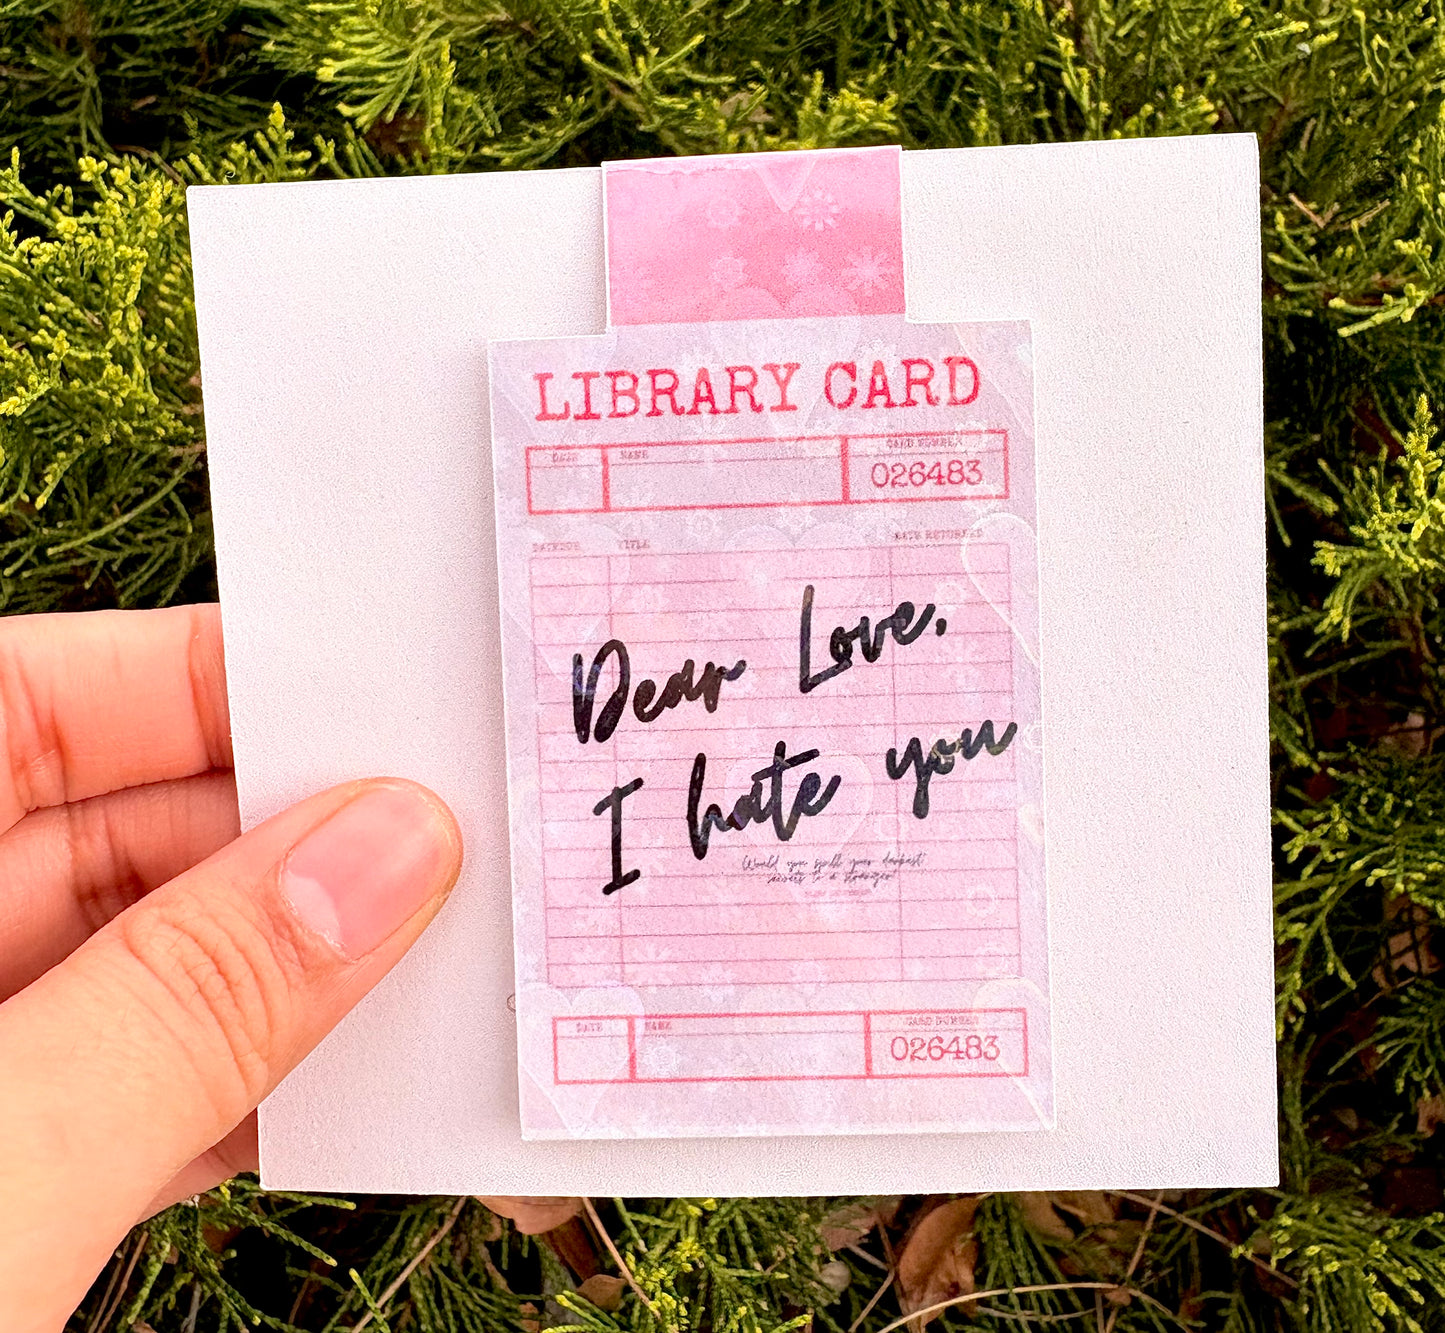 LIBRARY CARD
DATE NAME CARD NUMBER
026483
DATE DUE TITLE DATE RETURNED
Dear Love,
I hate you
Would you spill your darkest
secrets to a stranger?
DATE NAME CARD NUMBER
026483